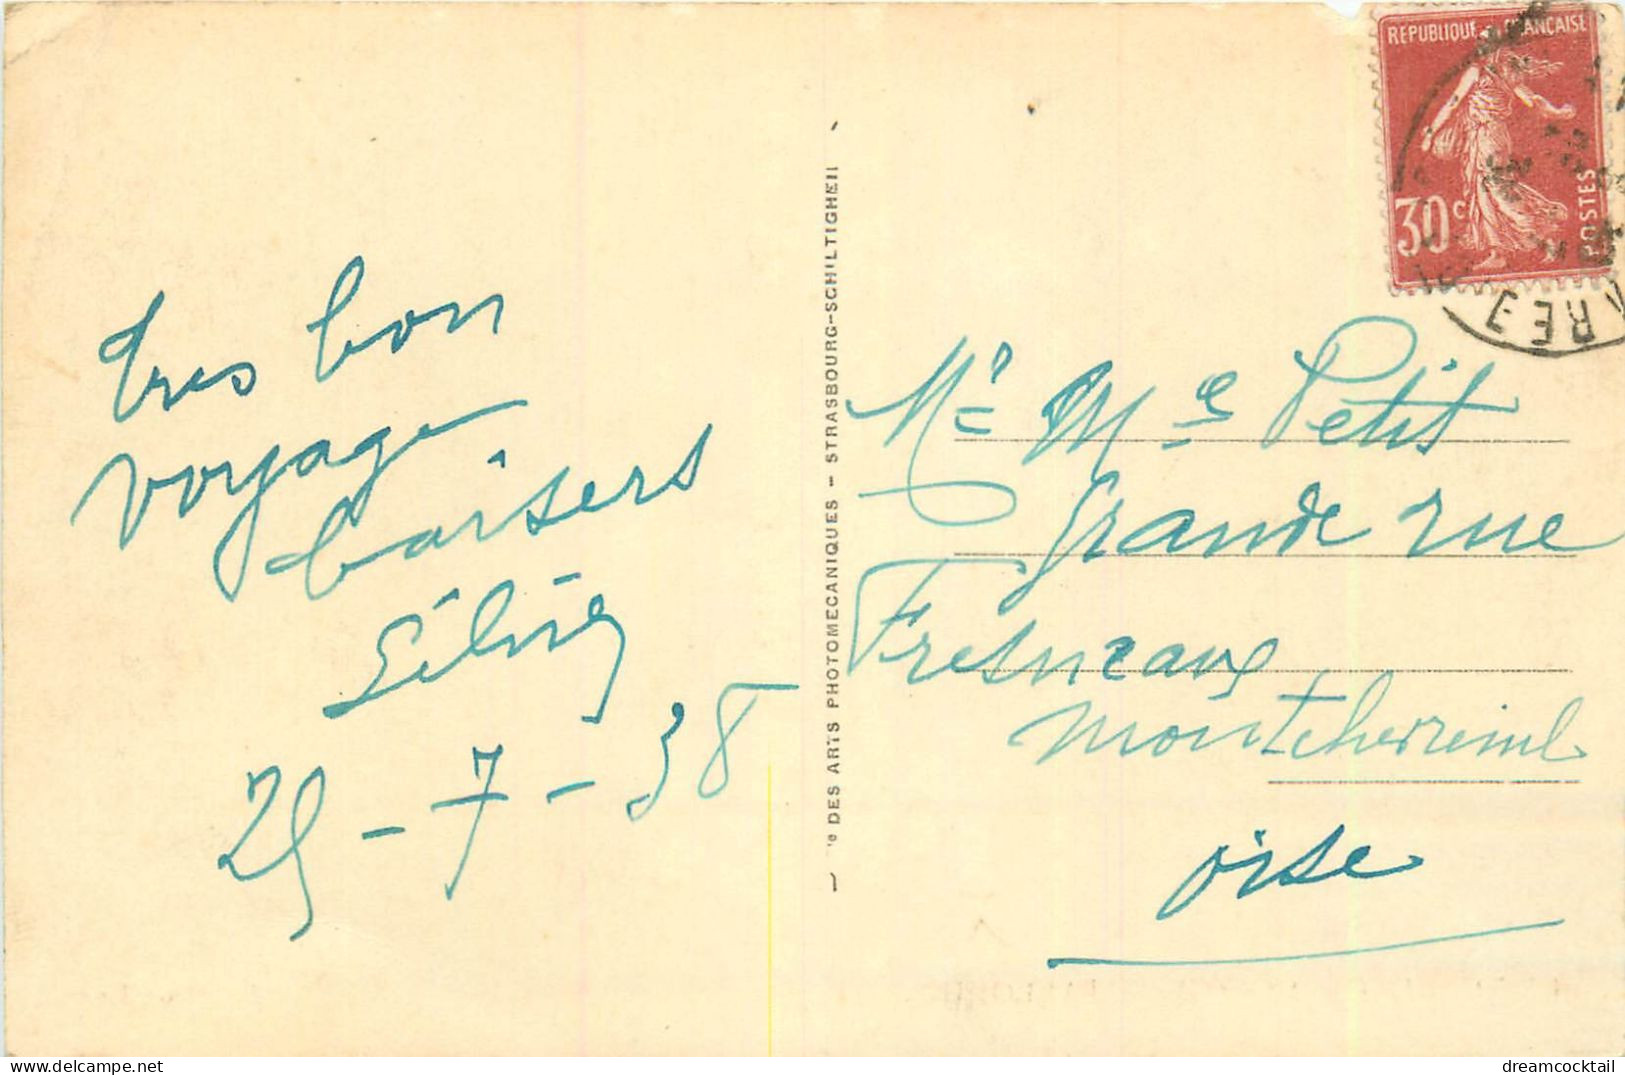 tres bon
voyage
baisers
29-7-38
- Ie DES ARTS PHOTOMECANIQUES - STRASBOURG-SCHILTIGHEIM -
REPUBLIQUE FRANÇAISE
30c
POSTES
Mr Mme Petit
grande rue
Fresneaux
Montchevreuil
oise
dreamcocktail